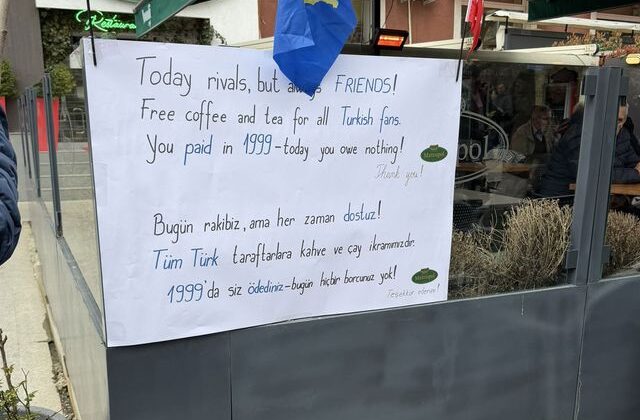 Restaura
Today rivals, but always FRIENDS!
Free coffee and tea for all Turkish fans.
You paid in 1999-today you owe nothing!
Thank you!
Bugün rakibiz, ama her zaman dostuz!
Tüm Türk taraftarlara kahve ve çay ikramımızdır.
1999'da siz ödediniz-bugün hiçbir borcunuz yok!
Teşekkür ederiz!
pol